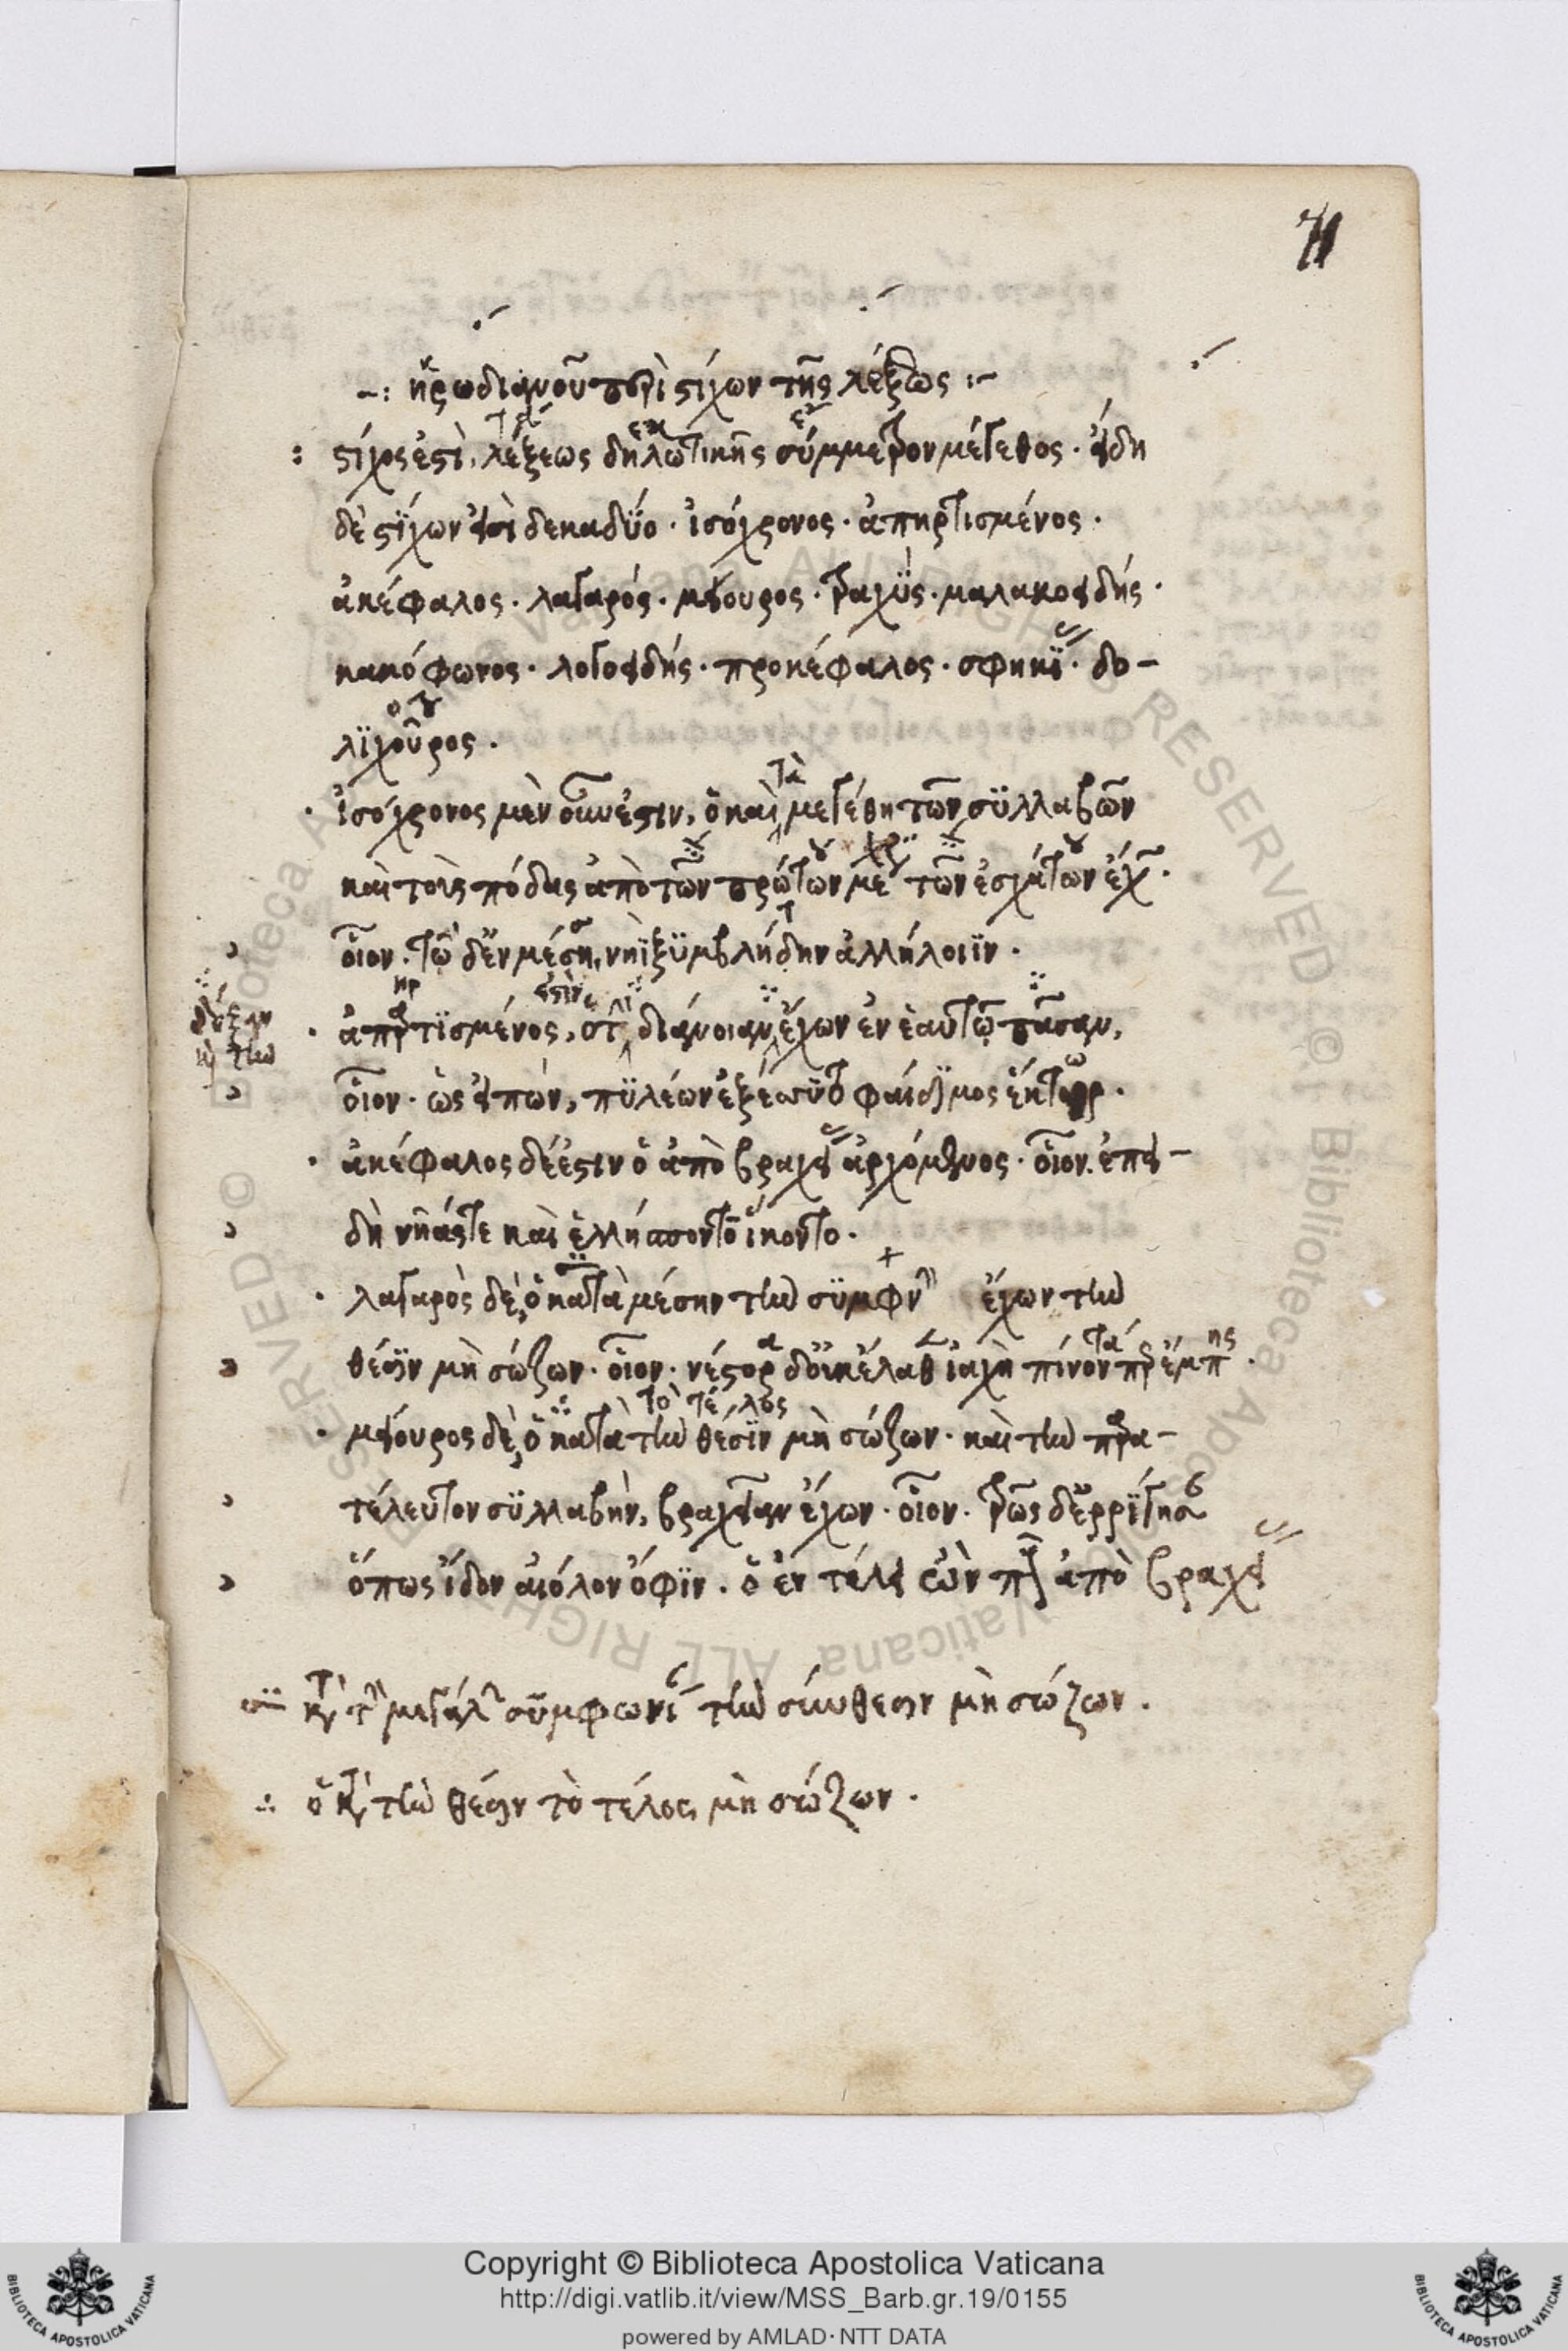 71
-: ἡρωδιανοῦ περὶ στίχων τῆς λέξεως :-
: στίχος ἐστὶ, λέξεως δηλωτικῆς σύμμετρον μέγεθος · εἴδη
δὲ στίχων εἰσὶ δεκαδύο · ἰσόχρονος · ἀπηρτισμένος ·
ἀκέφαλος · λαγαρός · μείουρος · τραχύς · μαλακοειδής ·
κακόφωνος · λογοειδής · προκέφαλος · σφηκί · δο-
λιχοῦρος ·
· ἰσόχρονος μὲν οὖν ἐστιν, ὁ καὶ τὰ μεγέθη τῶν συλλαβῶν
καὶ τοὺς πόδας ἀπὸ τῶν πρώτων μέ τῶν ἐσχάτων ἔχ ·
οἷον · τῶ δ' ἐν μέση, νηῒ ξυμβλήδην ἀλλήλοιϊν ·
δόξαν
καὶ τὴν
· ἀπαρτισμένος, ἐστὶν διάνοιαν ἔχων ἐν ἑαυτῶ πᾶσαν,
οἷον · ὡς εἰπών, πυλέων ἐξέσσυτο φαίδιμος ἕκτωρ ·
· ἀκέφαλος δέ ἐστιν ὁ ἀπὸ βραχεί ἀρχόμενος · οἷον · ἐπει-
δὴ νῆάς τε καὶ ἑλλήσποντον ἵκοντο ·
· λαγαρὸς δὲ, ὁ κατὰ μέσην τὴν συμφν ἔχων τὴν
θέσιν μὴ σώζων · οἷον · νέστορα δ' οὐκ ἔλαθ ἰαχὴ πίνοντά περ ἔμπης ·
· μείουρος δὲ, ὁ κατὰ τὴν θέσιν τὸ τέλος μὴ σώζων · καὶ τὴν παρα-
τέλευτον συλλαβὴν, βραχεῖαν ἔχων · οἷον · τρῶες δ' ἐρρίγησαν
ὅπως ἴδον αἰόλον ὄφιν · ὁ ἐν τέλει ἀπὸ βραχεί
κατὰ μεγάλ συμφωνί τὴν σύνθεσιν μὴ σώζων ·
∴ ὁ κατὰ τὴν θέσιν τὸ τέλος μὴ σώζων ·
Copyright © Biblioteca Apostolica Vaticana
http://digi.vatlib.it/view/MSS_Barb.gr.19/0155
powered by AMLAD·NTT DATA